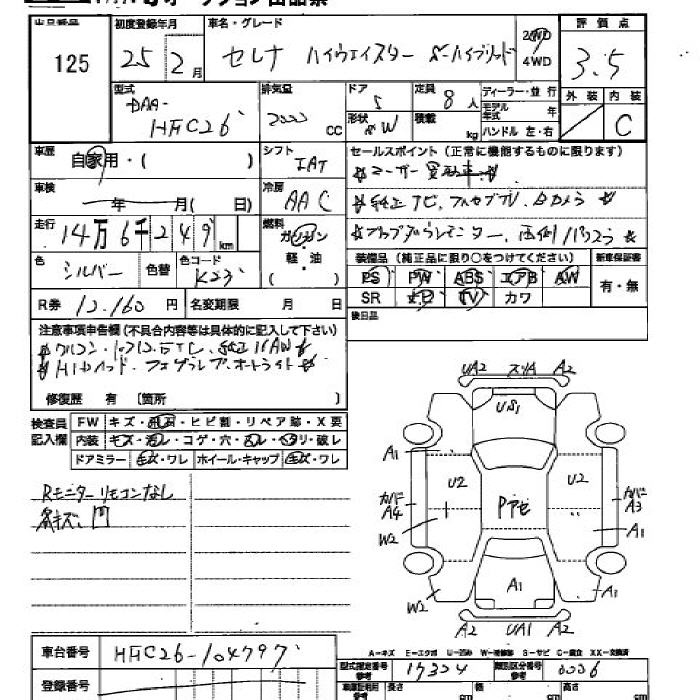 出品番号 初度登録年月 車名・グレード 評価点
125 25 2月 セレナ ハイウェイスター S-ハイブリッド 2WD 4WD 3.5
型式 排気量 ドア 定員 ディーラー・並行 外装 内装
DAA-HFC26 2000 CC 5 8人 モデル年式 年 C
形状 W 積載 kg ハンドル 左・右
車歴 自家用・( ) シフト IAT セールスポイント(正常に機能するものに限ります)
車検 年 月( 日) 冷房 AAC
純正ナビ、フルセグTV、Bカメラ
走行 14万6千249km 燃料 ガソリン
フリップダウンモニター、両側パワスラ
軽・油
( )
色 シルバー 色替 色コード K23
装備品(純正品に限り○をつけてください) 新車保証書
PS PW ABS エアB AW 有・無
R券 12,160円 名変期限 月 日 SR ナビ TV カワ
後日品
注意事項申告欄(不具合内容等は具体的に記入して下さい)
修復歴 有 〔箇所 〕
検査員記入欄 FW キズ・飛石・ヒビ割・リペア跡・X要
内装 キズ・汚レ・コゲ・穴・スレ・ハリ・破レ
ドアミラー キズ・ワレ ホイール・キャップ キズ・ワレ
Rモニターリモコンなし
UA2 スリA A2
US1
A1
U2 U2
カバーA4 Pナビ カバーA3
W2 A1
A1
W2
A2 UA1 A2
A-キズ E-エクボ U-凹み W-補修跡 S-サビ C-腐食 XX-交換済
車台番号 HFC26-104797
型式指定番号 17324 類別区分番号 0006
登録番号
長さ cm 幅 cm 高さ cm